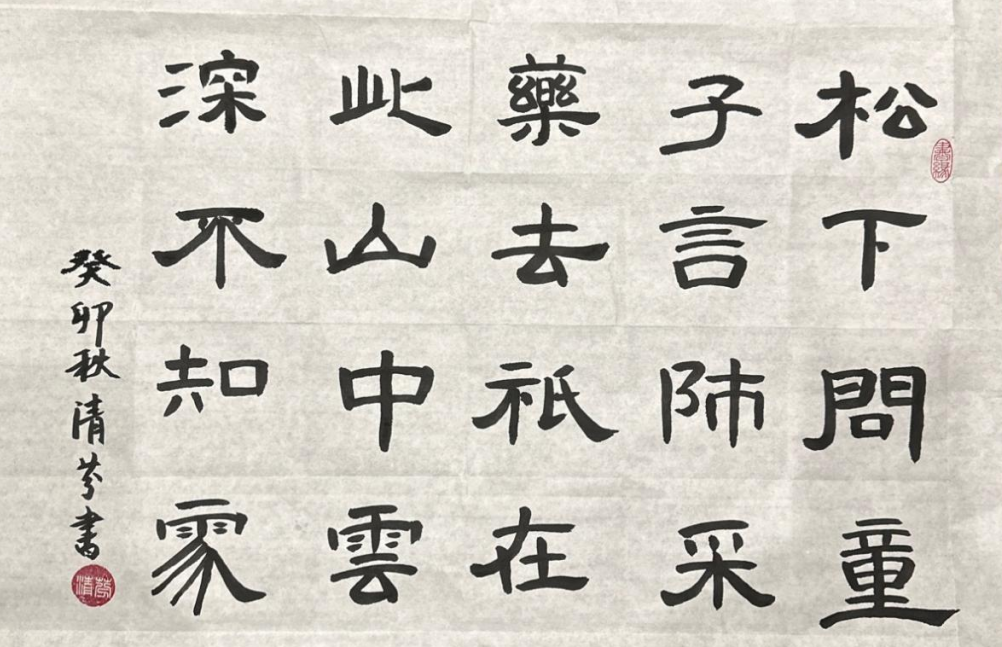 書緣
松下問童
子言師采
藥去祇在
此山中雲
深不知處
癸卯秋清芬書
清芬